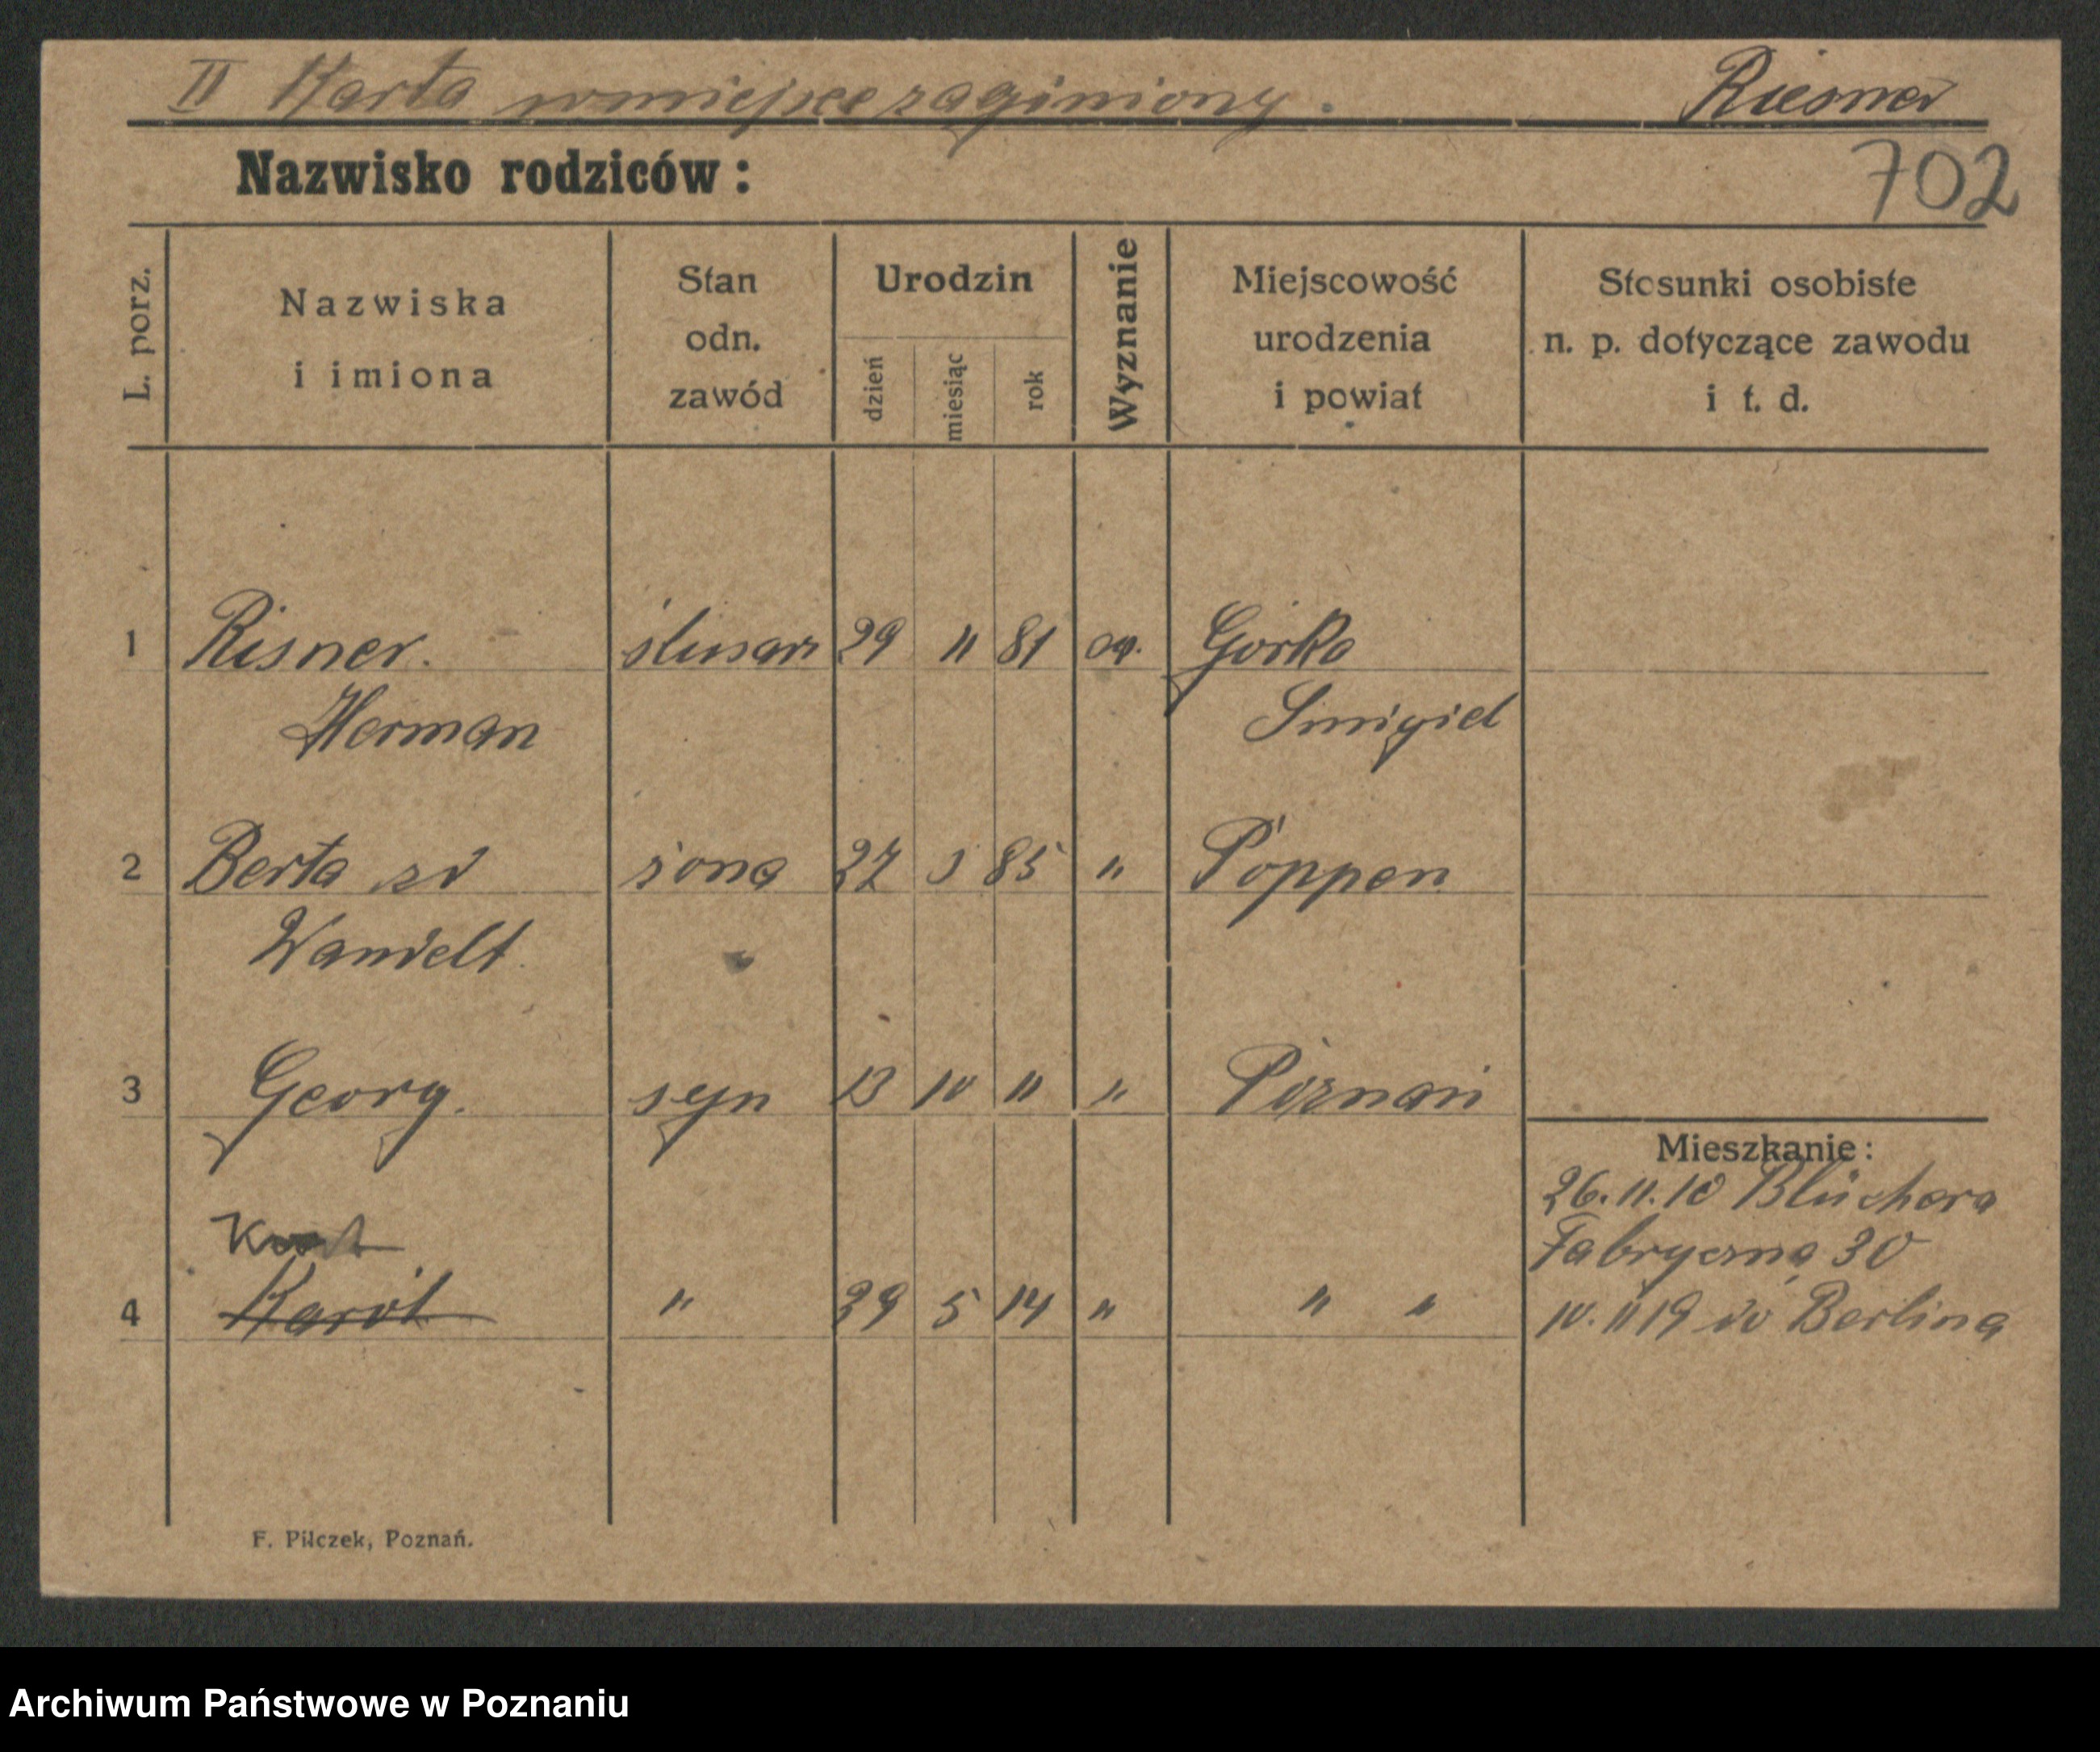 II Karta w miejsce zaginiony. Riesner
Nazwisko rodziców: 702
L. porz. Nazwiska i imiona Stan odn. zawód Urodzin dzień miesiąc rok Wyznanie Miejscowość urodzenia i powiat Stosunki osobiste n. p. dotyczące zawodu i t. d.
1 Risner. ślusarz 29 11 81 Gorka
Herman Smigiel
2 Berta zd żona 27 85 " Poppen
Wandelt
3 Georg. syn 13 10 11 " Poznań
Mieszkanie:
26. 11. 10 Blüchera
Kurt Fabryczna 30
4 Karol " 29 5 14 " " " 10. 11 19 do Berlina
F. Pilczek, Poznań.
Archiwum Państwowe w Poznaniu